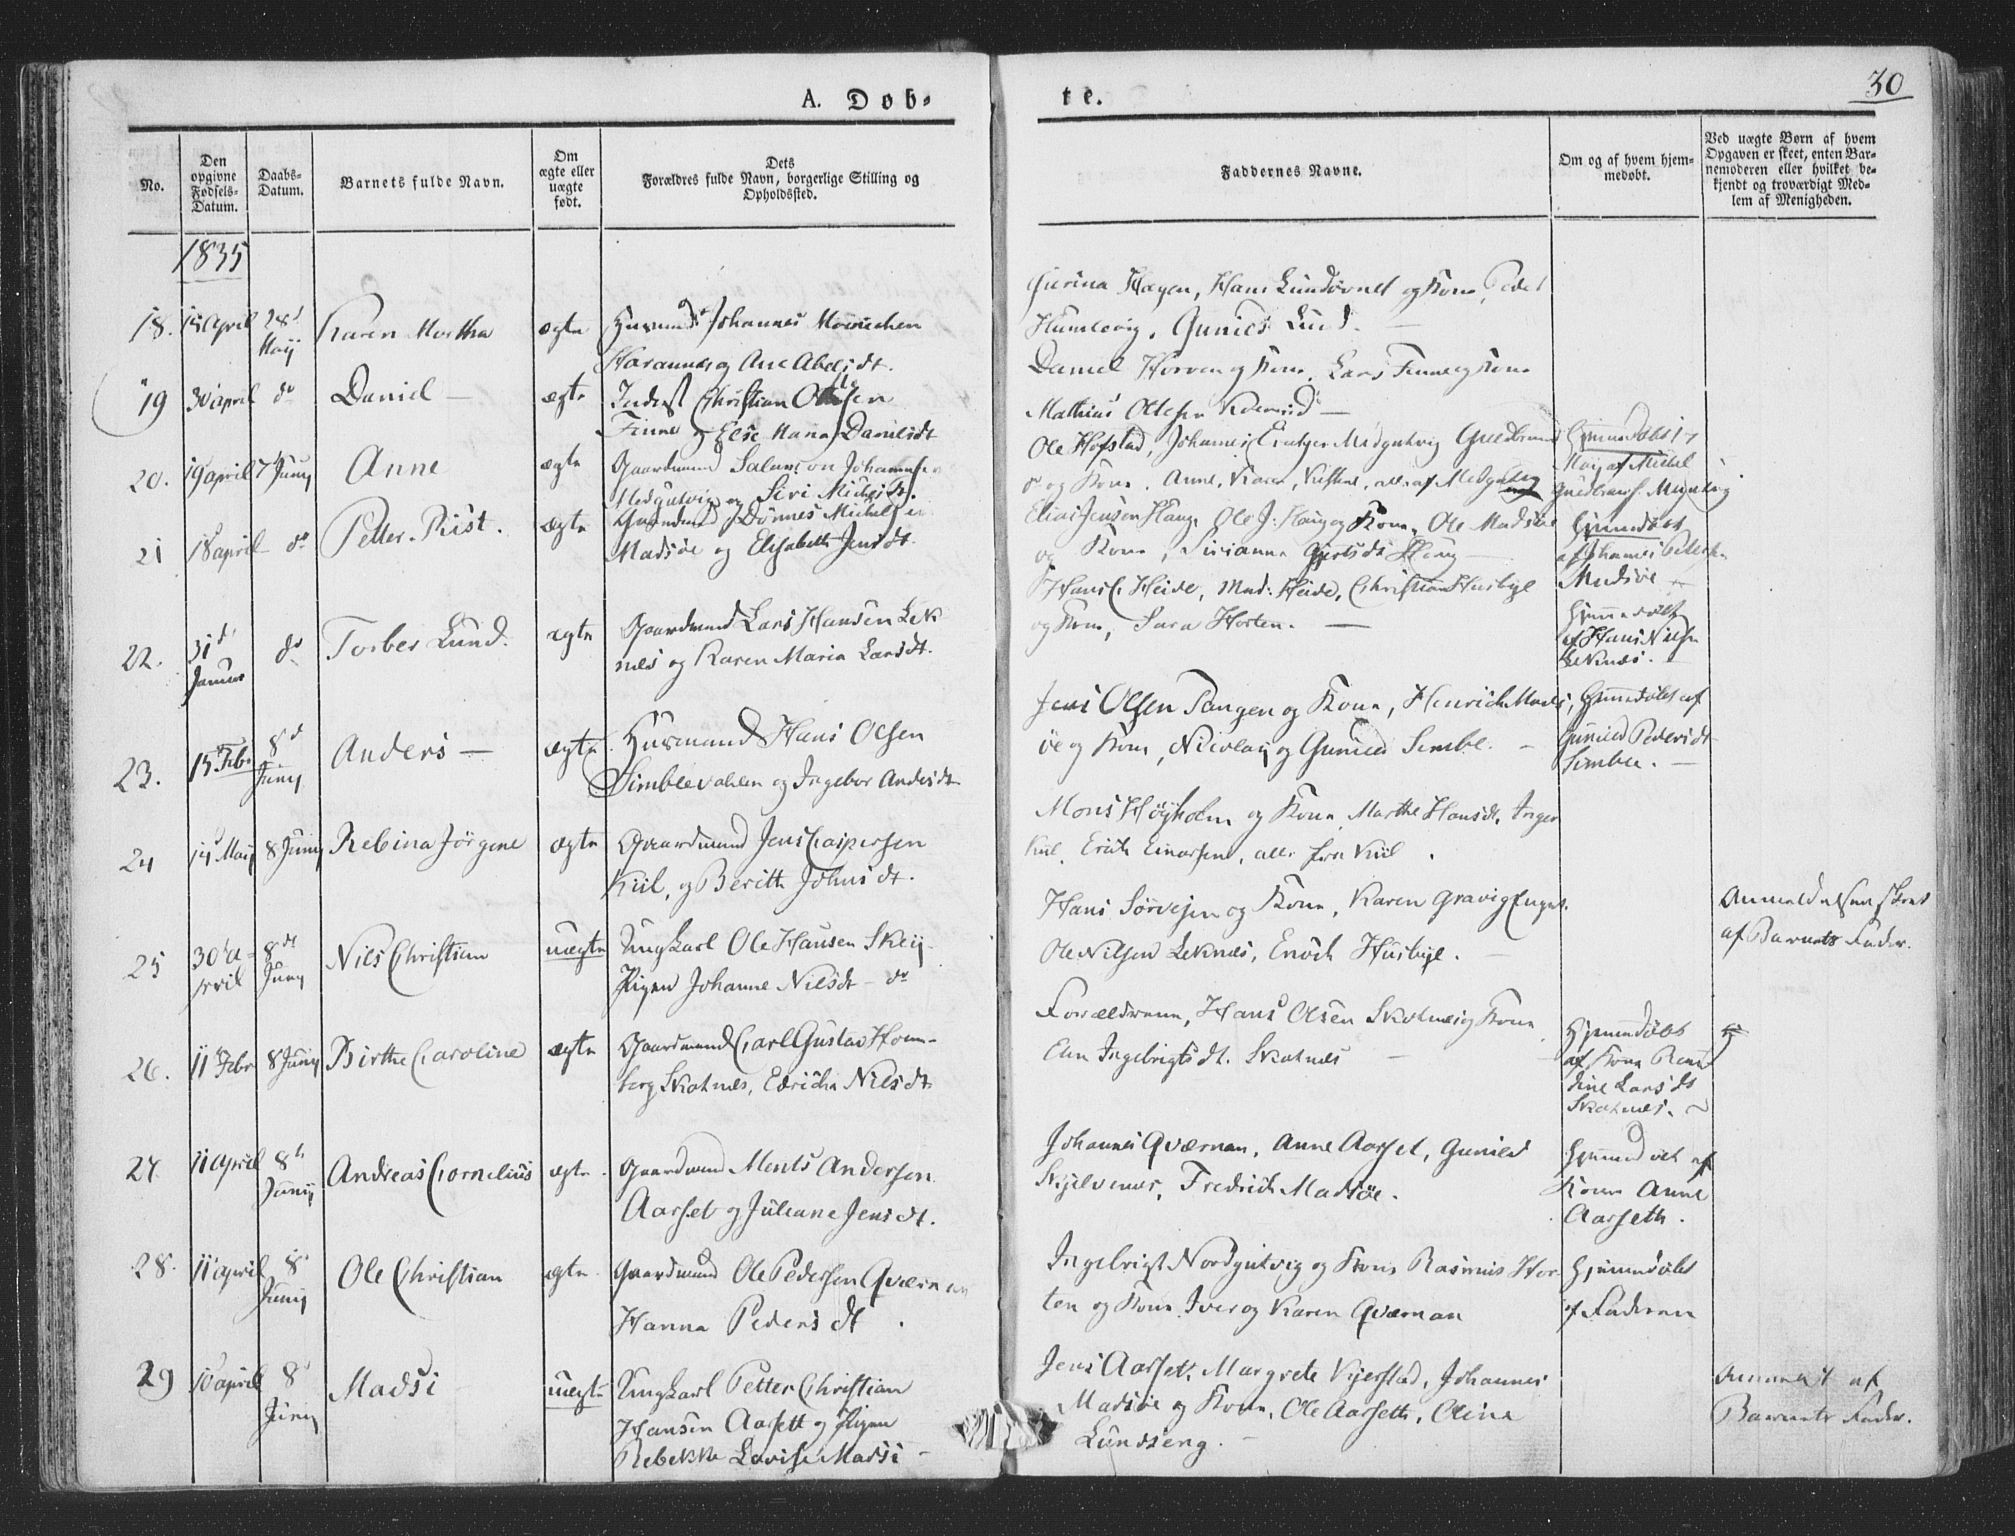 A. Døb-
te.
30
No.
Den opgivne Fødsels-Datum.
Daabs-Datum.
Barnets fulde Navn.
Om ægte eller uægte født.
Dets Forældres fulde Navn, borgerlige Stilling og Opholdssted.
Faddernes Navne.
Om og af hvem hjem-meddøbt.
Ved uægte Børn af hvem Opgaven er skeet, enten Bar-nemoderen eller hvilket be-kjendt og troværdigt Med-lem af Menigheden.
1835
18. April 28d Maij Karen Martha ægte Huusmand Johannes
og Ane Abelsdt.
Hagen, Hans og Kone, Peder
Lund.
19 30 april do Daniel — ægte Inderst Christian Olsen
Finne og Else Maria Danielsdt
Daniel Horven og Kone, Lars Finne og Kone
Mathias Ottesen
20. 19 april 7 Juny Anne ægte Gaardmand Salamon Johannesen
Medgutvig og Siri Michelsdt.
Ole Hofstad, Johannes Medgutvig
og Kone, Anne, Karen, alle af Medgutvig
21 18 april do Petter Kist. ægte Michelsen
Madsøe og Elisabeth Jensdt.
Elias Jensen Haug, Ole J: Haug og Kone, Ole Madsøe
og Kone, Haug
Hjemmedøbt
af Johannes Petersen
Madsøe
22. 31d Januar do Torber Lund. ægte Gaardmand Lars Hansen Lek
næs og Karen Maria Larsdt.
Hans C. Heide, Mad: Heide, Christian Husbye
og Kone, Sara Horten. —
Hjemmedøbt
af Hans Nilsen
Leknæs.
23. 15 Febr 8d Juny Anders — ægte Huusmand Hans Olsen
Simblevahlen og Ingebor Andersdt
Jens Olsen Tangen og Kone, Henrich Mads
øe og Kone, Nicolaij og Gunild Simble. —
Hjemmedøbt af
Gunild Pedersdt
Simble. —
24 14 Maij 8 Juny Rebina Jørgine ægte Gaardmand Jens Caspersen
Kiil, og Berith Johnsdt.
Mons Høyholm og Kone, Marthe Hansdt, Inger
Kiil, Erich Einersen, alle fra Kiil.
25 30te April 8de Juny Nils Christian uægte Ungkarl Ole Hansen Skey
Pigen Johanne Nilsdt — do
Hans Sørvejen og Kone, Karen
Ole Nilsen Leknæs, Enoch Husbye.
Anmeldelsen skeet
af Barnets Fader.
26. 11 Febr 8 Juny Birthe Caroline ægte Gaardmand Carl Gustav Holm-
berg Skotnes, Edricha Nilsdt
Forældrene, Hans Olsen Skotnes og Kone
Elen Ingebrigtsdt. Skotnes
Hjemmedøbt
af Kone
Larsdt
Skotnes.
27. 11 april 8d Juny Andreas Cornelius ægte Gaardmand Ments Andersen
Aarset og Juliane Jensdt.
Johannes Qværnan, Anne Aarset, Gunild
Skjelvenes, Fredrich Madsøe.
Hjemmedøbt af
Kone Anne
Aarseth.
28. 11 april 8d Juny Ole Christian ægte Gaardmand Ole Pedersen Qværnan
Hanna Pedersdt.
Ingebrigt Nordgutvig og Kone Rasmus Hor-
ten og Kone Iver og Karen Qværnan
Hjemmedøbt
af Faderen
29 10 april 8d Juny Madsi uægte Ungkarl Petter Christian
Hansen Aarsett og Pigen
Rebekka Lovise Madsi —
Jens Aarseth, Margrete Kjerstad, Johannes
Madsøe og Kone, Ole Aarseth, Olina
Lundseng. —
Anmeldt af
Barnets Fader.